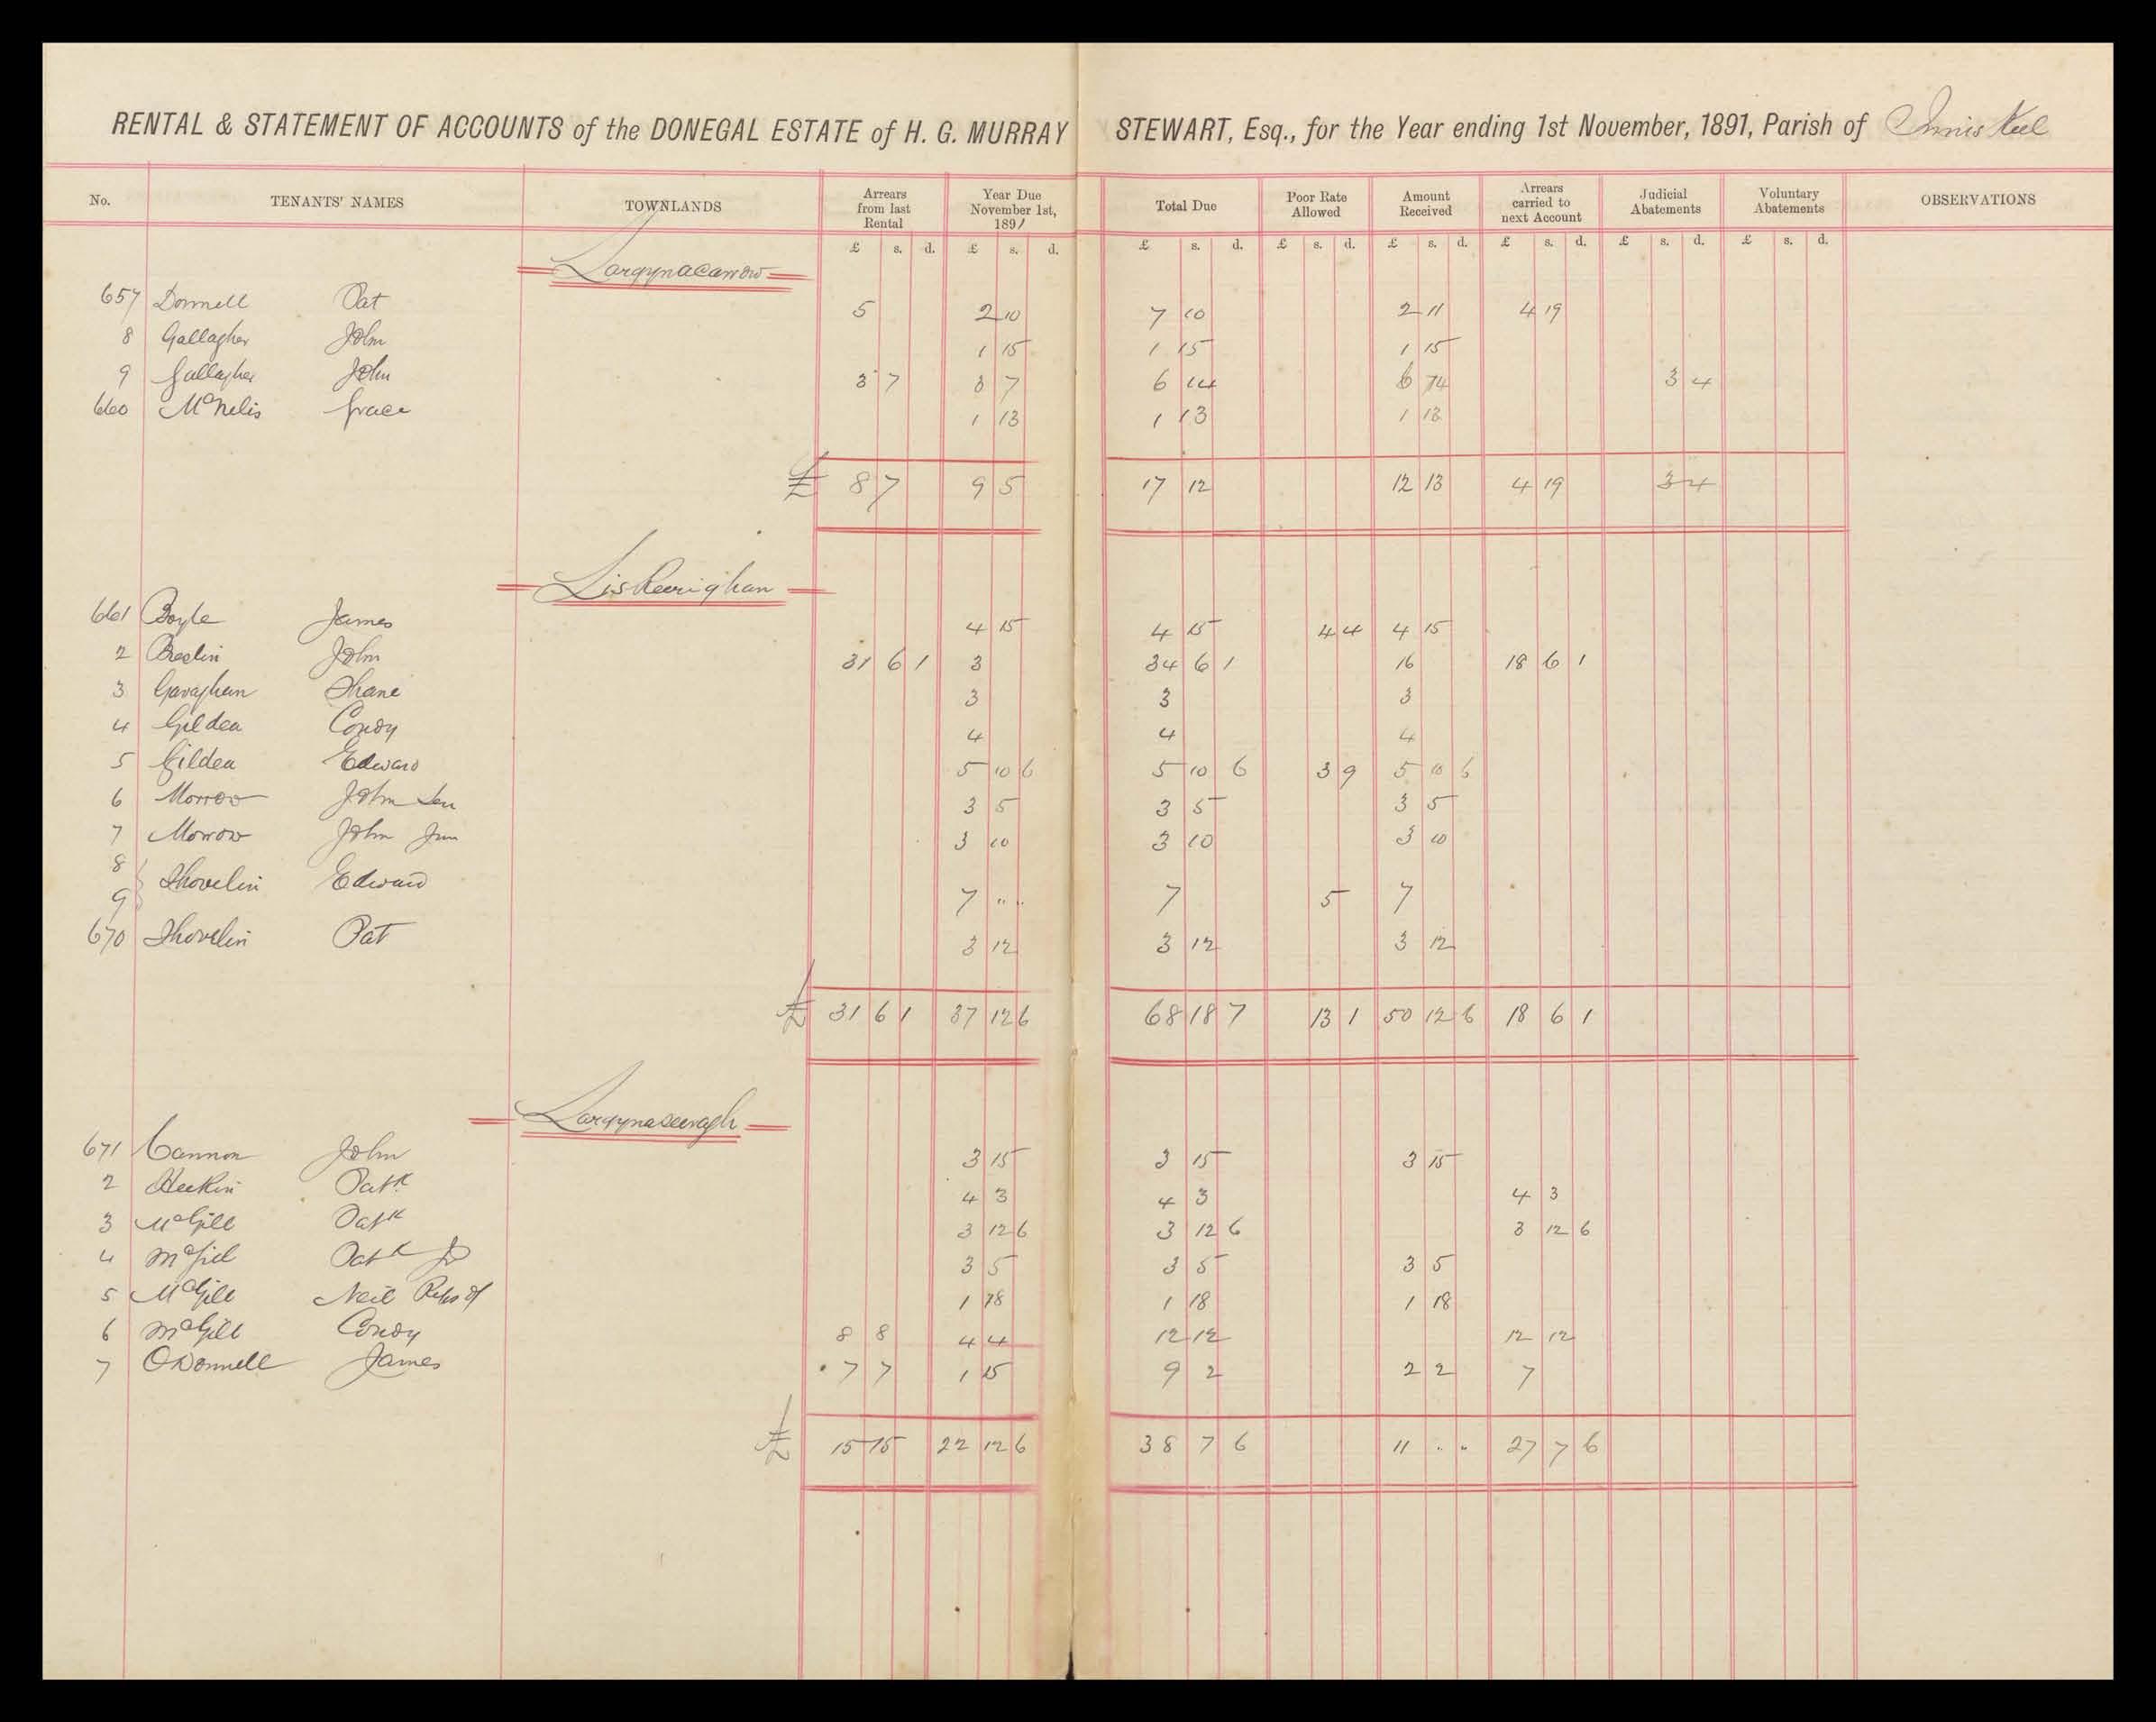 RENTAL & STATEMENT OF ACCOUNTS of the DONEGAL ESTATE of H. G. MURRAY STEWART, Esq., for the Year ending 1st November, 1891, Parish of Inniskeel
No. TENANTS' NAMES TOWNLANDS Arrears from last Rental Year Due November 1st, 1891 Total Due Poor Rate Allowed Amount Received Arrears carried to next Account Judicial Abatements Voluntary Abatements OBSERVATIONS
£ s. d. £ s. d. £ s. d. £ s. d. £ s. d. £ s. d. £ s. d. £ s. d.
Largynacarrow
657 Donnell Pat 5 2 10 7 10 2 11 4 19
8 Gallagher John 1 15 1 15 1 15
9 Gallagher John 3 7 3 7 6 14 6 14 3 4
660 McNelis Grace 1 13 1 13 1 13
£ 8 7 9 5 17 12 12 13 4 19 3 4
Liskeerighan
661 Boyle James 4 15 4 15 4 4 4 15
2 Breslin John 31 6 1 3 34 6 1 16 18 6 1
3 Gavaghan Shane 3 3 3
4 Gildea Condy 4 4 4
5 Gildea Edward 5 10 6 5 10 6 3 9 5 10 6
6 Morrow John Sen 3 5 3 5 3 5
7 Morrow John Jun 3 10 3 10 3 10
8
9 Shovelin Edward 7 " " 7 5 7
670 Shovelin Pat 3 12 3 12 3 12
£ 31 6 1 37 12 6 68 18 7 13 1 50 12 6 18 6 1
Largynaseeragh
671 Cannon John 3 15 3 15 3 15
2 Heekin Patk 4 3 4 3 4 3
3 McGill Patk 3 12 6 3 12 6 3 12 6
4 McGill Patk Jr 3 5 3 5 3 5
5 McGill Neil Reps of 1 18 1 18 1 18
6 McGill Condy 8 8 4 4 12 12 12 12
7 O'Donnell James 7 7 1 15 9 2 2 2 7
£ 15 15 22 12 6 38 7 6 11 " " 27 7 6